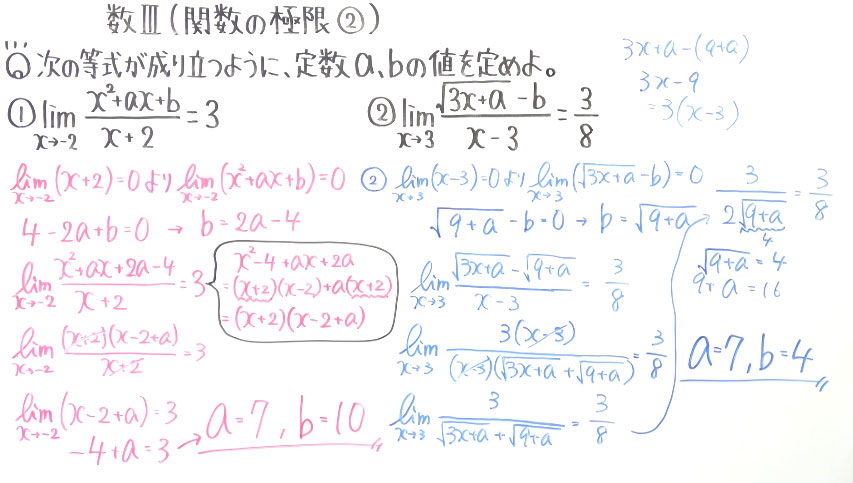 数Ⅲ(関数の極限②)
Q 次の等式が成り立つように、定数a,bの値を定めよ。
① lim_{x→-2} (x²+ax+b)/(x+2) = 3
② lim_{x→3} (√(3x+a) - b)/(x-3) = 3/8
3x+a-(9+a)
3x-9
=3(x-3)
lim_{x→-2} (x+2)=0より lim_{x→-2} (x²+ax+b)=0
4-2a+b=0 → b=2a-4
lim_{x→-2} (x²+ax+2a-4)/(x+2) = 3
x²-4+ax+2a
=(x+2)(x-2)+a(x+2)
=(x+2)(x-2+a)
lim_{x→-2} (x+2)(x-2+a)/(x+2) = 3
lim_{x→-2} (x-2+a)=3
-4+a=3 → a=7, b=10
② lim_{x→3} (x-3)=0より lim_{x→3} (√(3x+a)-b)=0
√(9+a) - b=0 → b=√(9+a)
lim_{x→3} (√(3x+a)-√(9+a))/(x-3) = 3/8
lim_{x→3} 3(x-3)/((x-3)(√(3x+a)+√(9+a))) = 3/8
lim_{x→3} 3/(√(3x+a)+√(9+a)) = 3/8
3/(2√(9+a)) = 3/8
4
√(9+a)=4
9+a=16
a=7, b=4